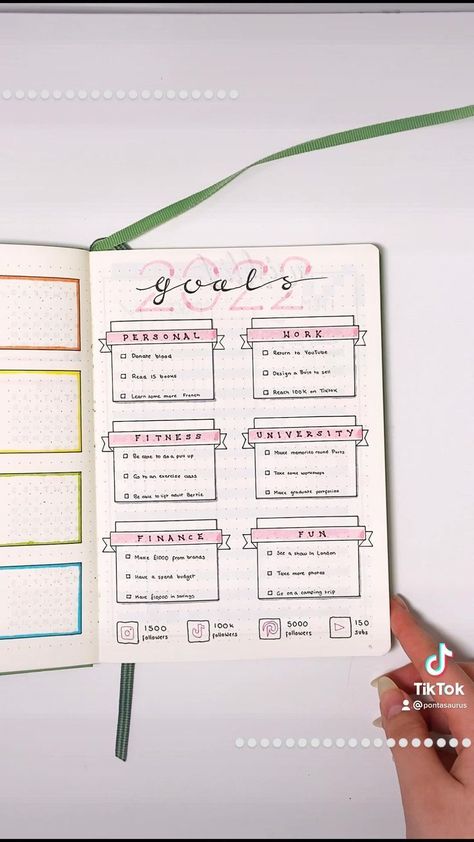 2022
goals
PERSONAL
Donate blood
Read 15 books
Learn some more French
WORK
Return to YouTube
Design a Bujo to sell
Reach 100K on TikTok
FITNESS
Be able to do a pull up
Go to an exercise class
Be able to lift adult Bertie
UNIVERSITY
Make memories round Ports
Take some workshops
Make graduate portfolio
FINANCE
Make £1000 from brands
Have a spend budget
Have £10000 in savings
FUN
See a show in London
Take more photos
Go on a camping trip
1500 followers
100K followers
5000 followers
150 subs
TikTok
@pontasaurus